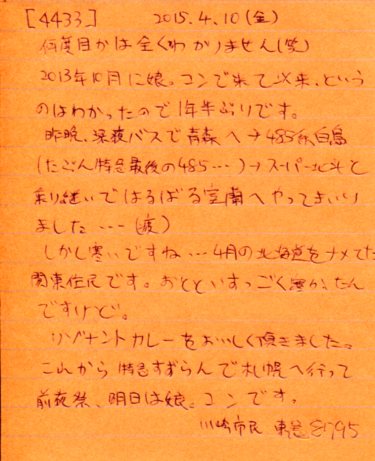 [4433] 2015.4.10(金)
何度目かは全くわかりません(笑)
2013年10月に娘。コンで来て以来、という
のはわかったので1年半ぶりです。
昨晩、深夜バスで青森へ→485系白鳥
(たぶん特急最後の485…)→スーパー北斗と
乗り継いではるばる室蘭へやってまいり
ました……(疲)
しかし寒いですね…4月の北海道をナメてた
関東住民です。おとといすっごく寒かったん
ですけど。
リゾナントカレーをおいしく頂きました。
これから特急すずらんで札幌へ行って
前夜祭、明日は娘。コンです。
川崎市民 東急8795